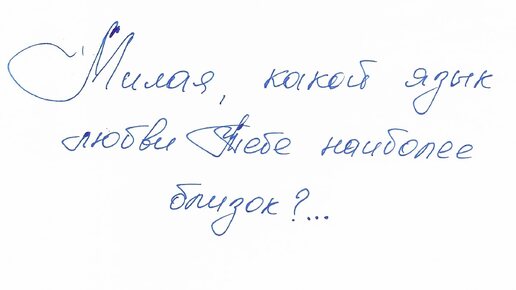 Милая, какой язык
любви Тебе наиболее
близок?...